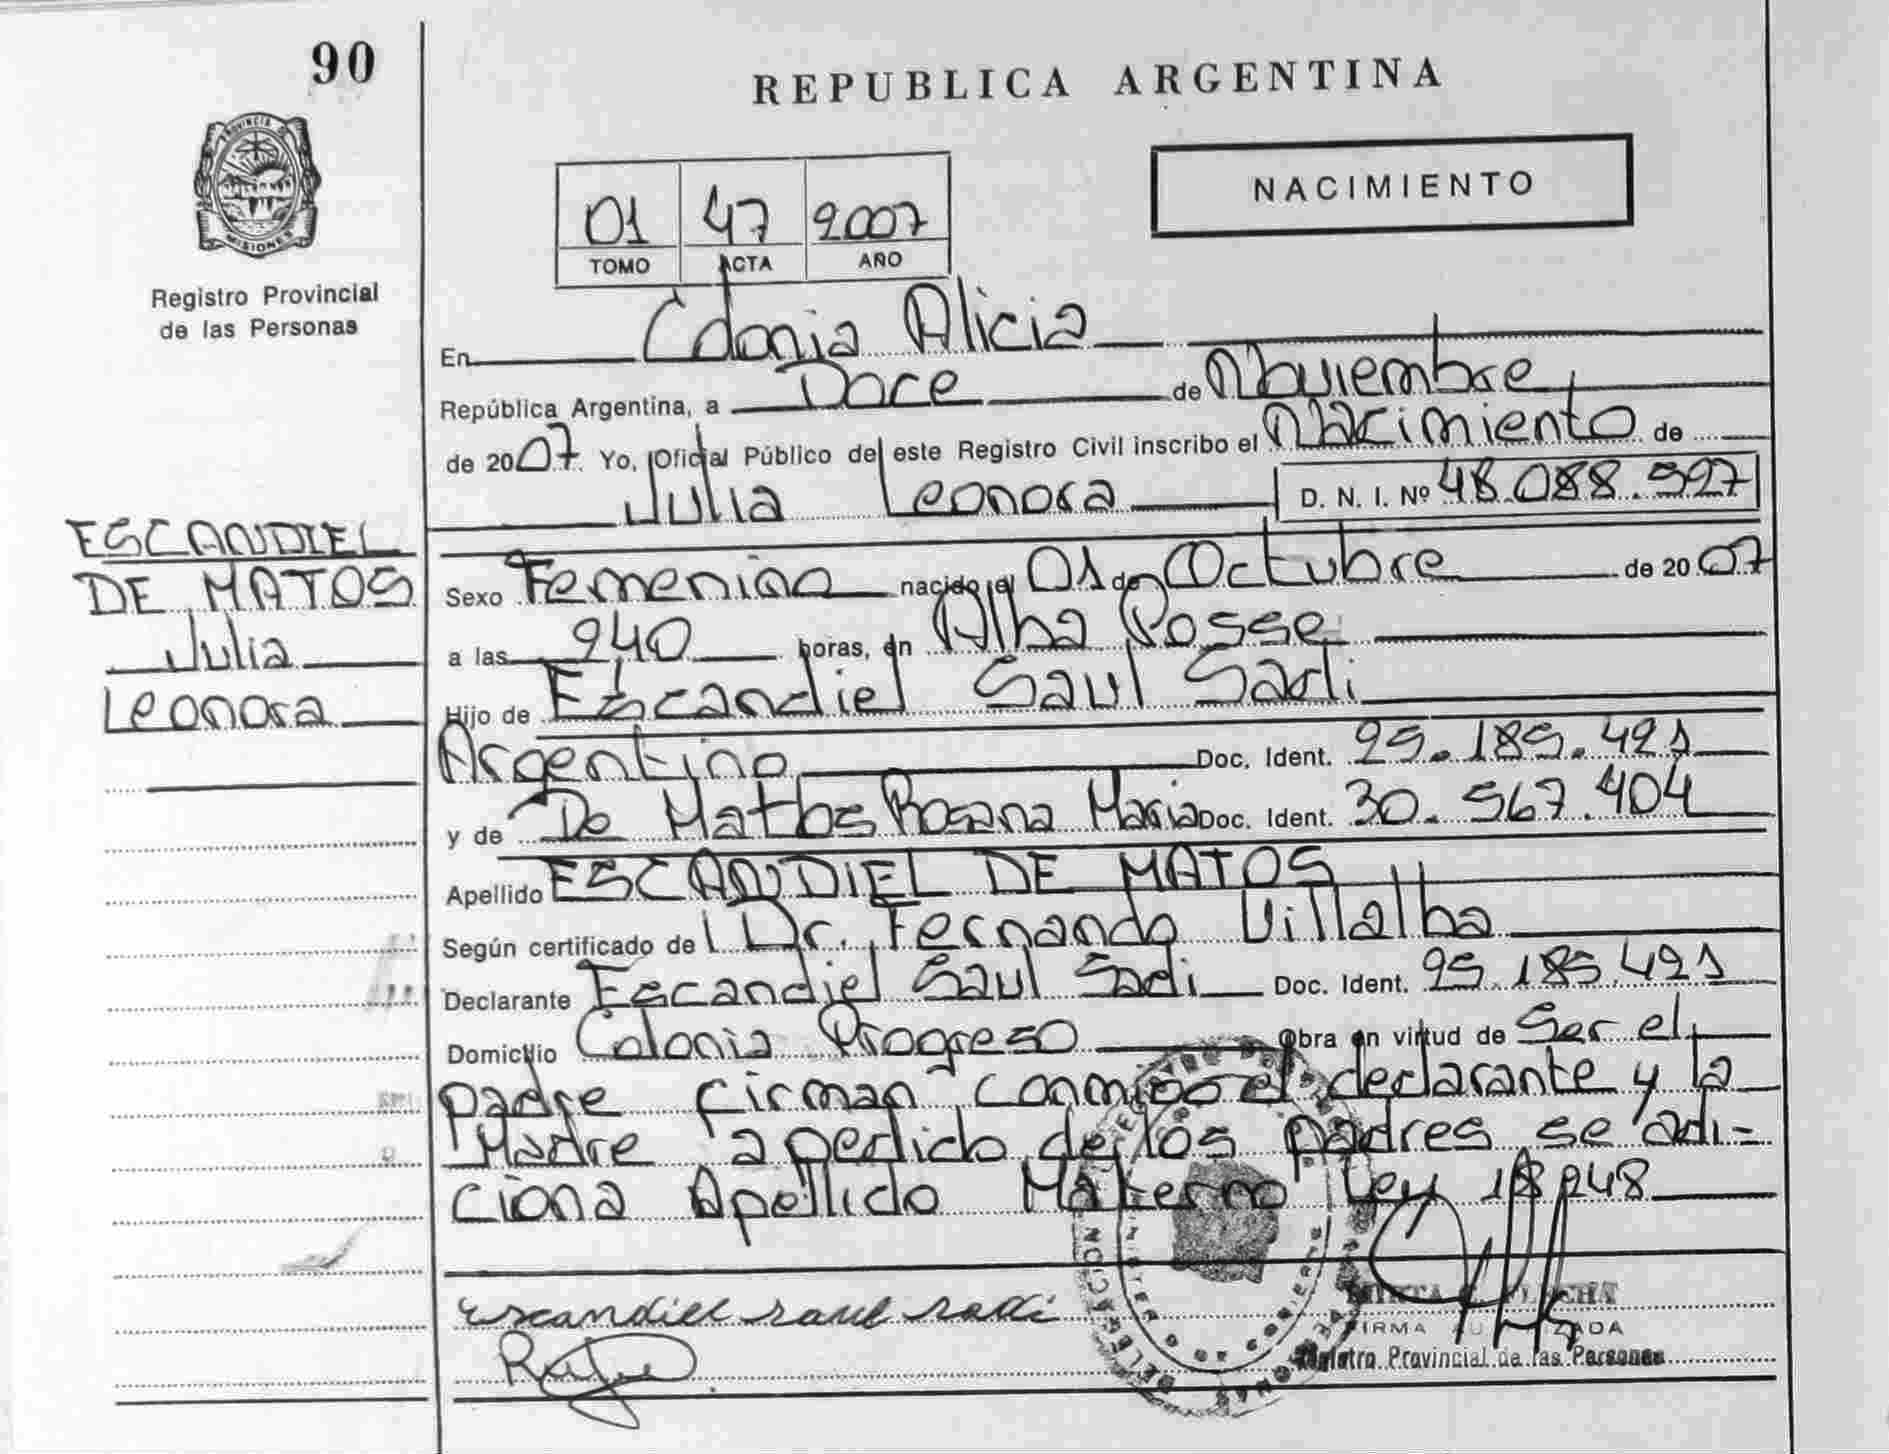 90
REPUBLICA ARGENTINA
PROVINCIA DE
MISIONES
Registro Provincial
de las Personas
NACIMIENTO
01 47 2007
TOMO ACTA AÑO
En Colonia Alicia
República Argentina, a Doce de Noviembre
de 2007 Yo, Oficial Público de este Registro Civil inscribo el Nacimiento de
Julia Leonora D. N. I. Nº 48.088.597
ESCANDIEL
DE MATOS
Julia
Leonora
Sexo Femenino nacido el 01 de Octubre de 2007
a las 940 horas, en Alba Posse
Hijo de Escandiel Saul Sadi
Argentino Doc. Ident. 29.189.421
y de De Mattos Rosana Maria Doc. Ident. 30.567.404
Apellido ESCANDIEL DE MATOS
Según certificado de Dr. Fernando Villalba
Declarante Escandiel Saul Sadi Doc. Ident. 29.189.421
Domicilio Colonia Progreso Obra en virtud de Ser el
padre firman conmigo el declarante y la
Madre a pedido de los padres se adi-
ciona Apellido Materno Ley 18248
escandiel saul sadi
FIRMA AUTORIZADA
Registro Provincial de las Personas